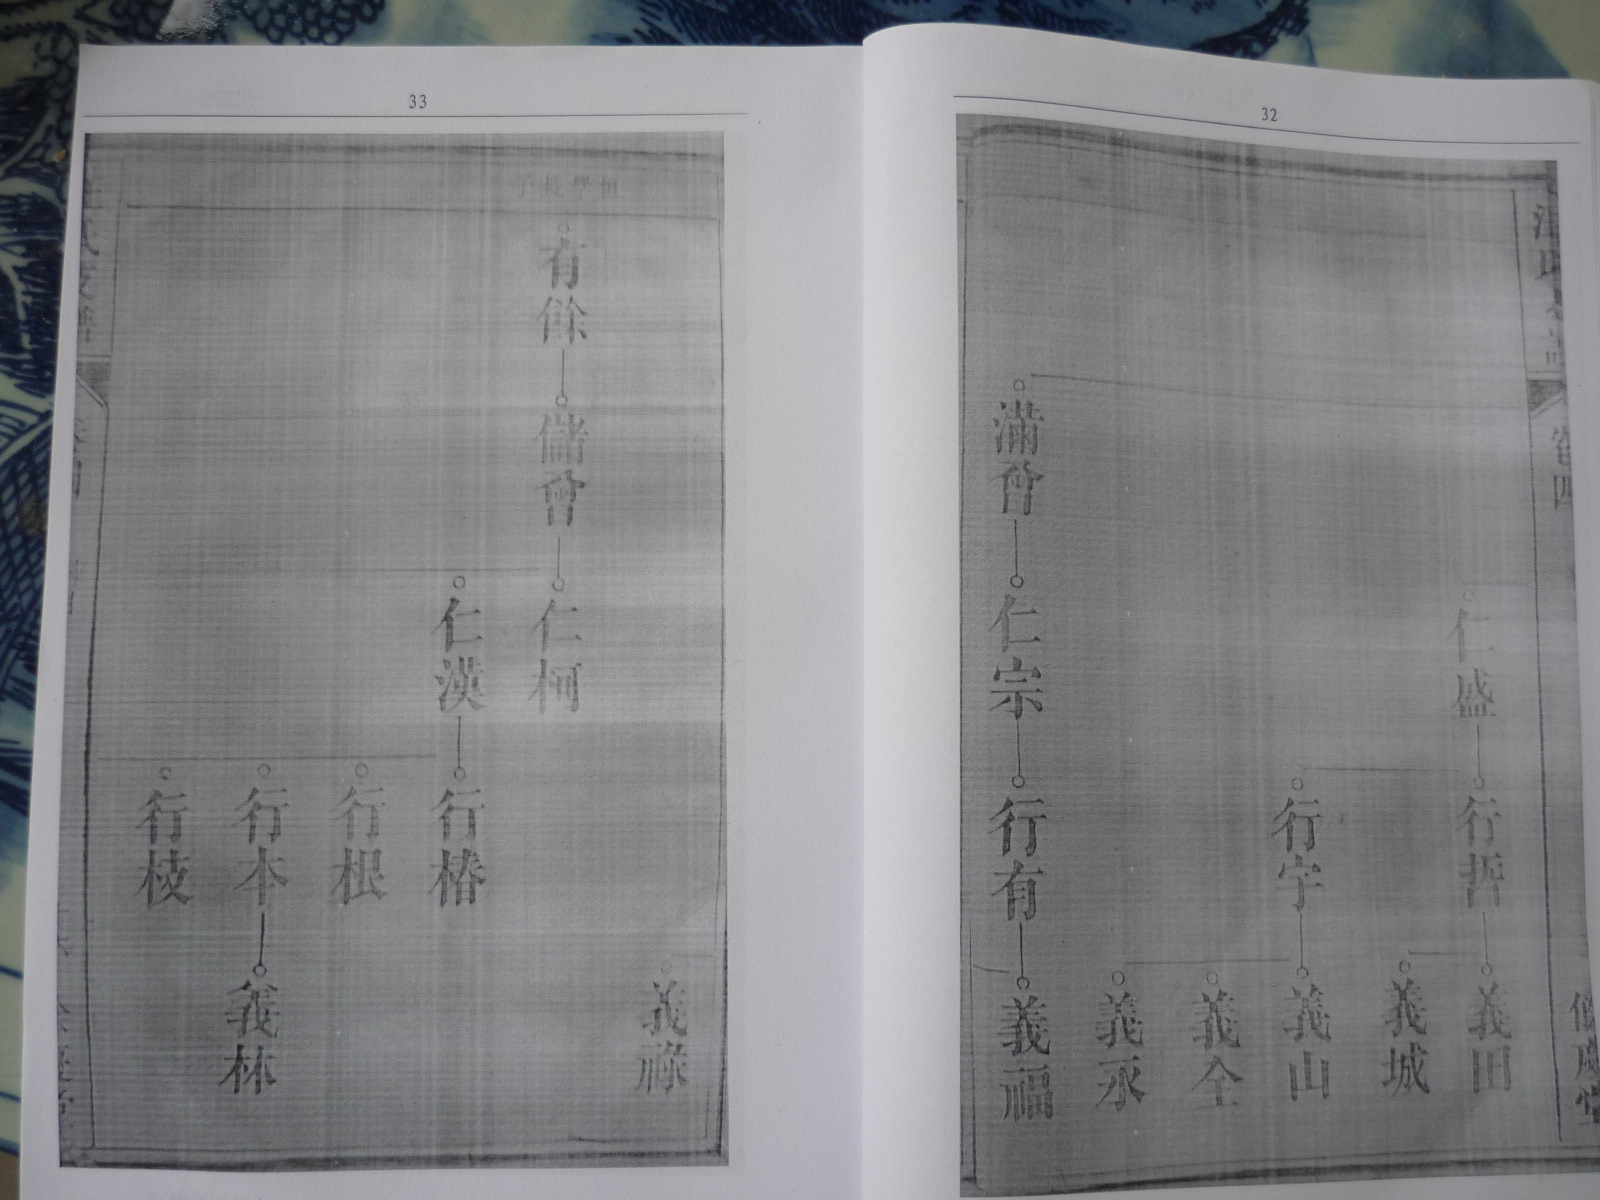 32
卷四
仁盛
行哲
義田
義城
行宇
義山
義全
義承
滿曾
仁宗
行有
義福
33
有餘
儲曾
仁柯
仁漢
行椿
行根
行本
行枝
義林
義祿